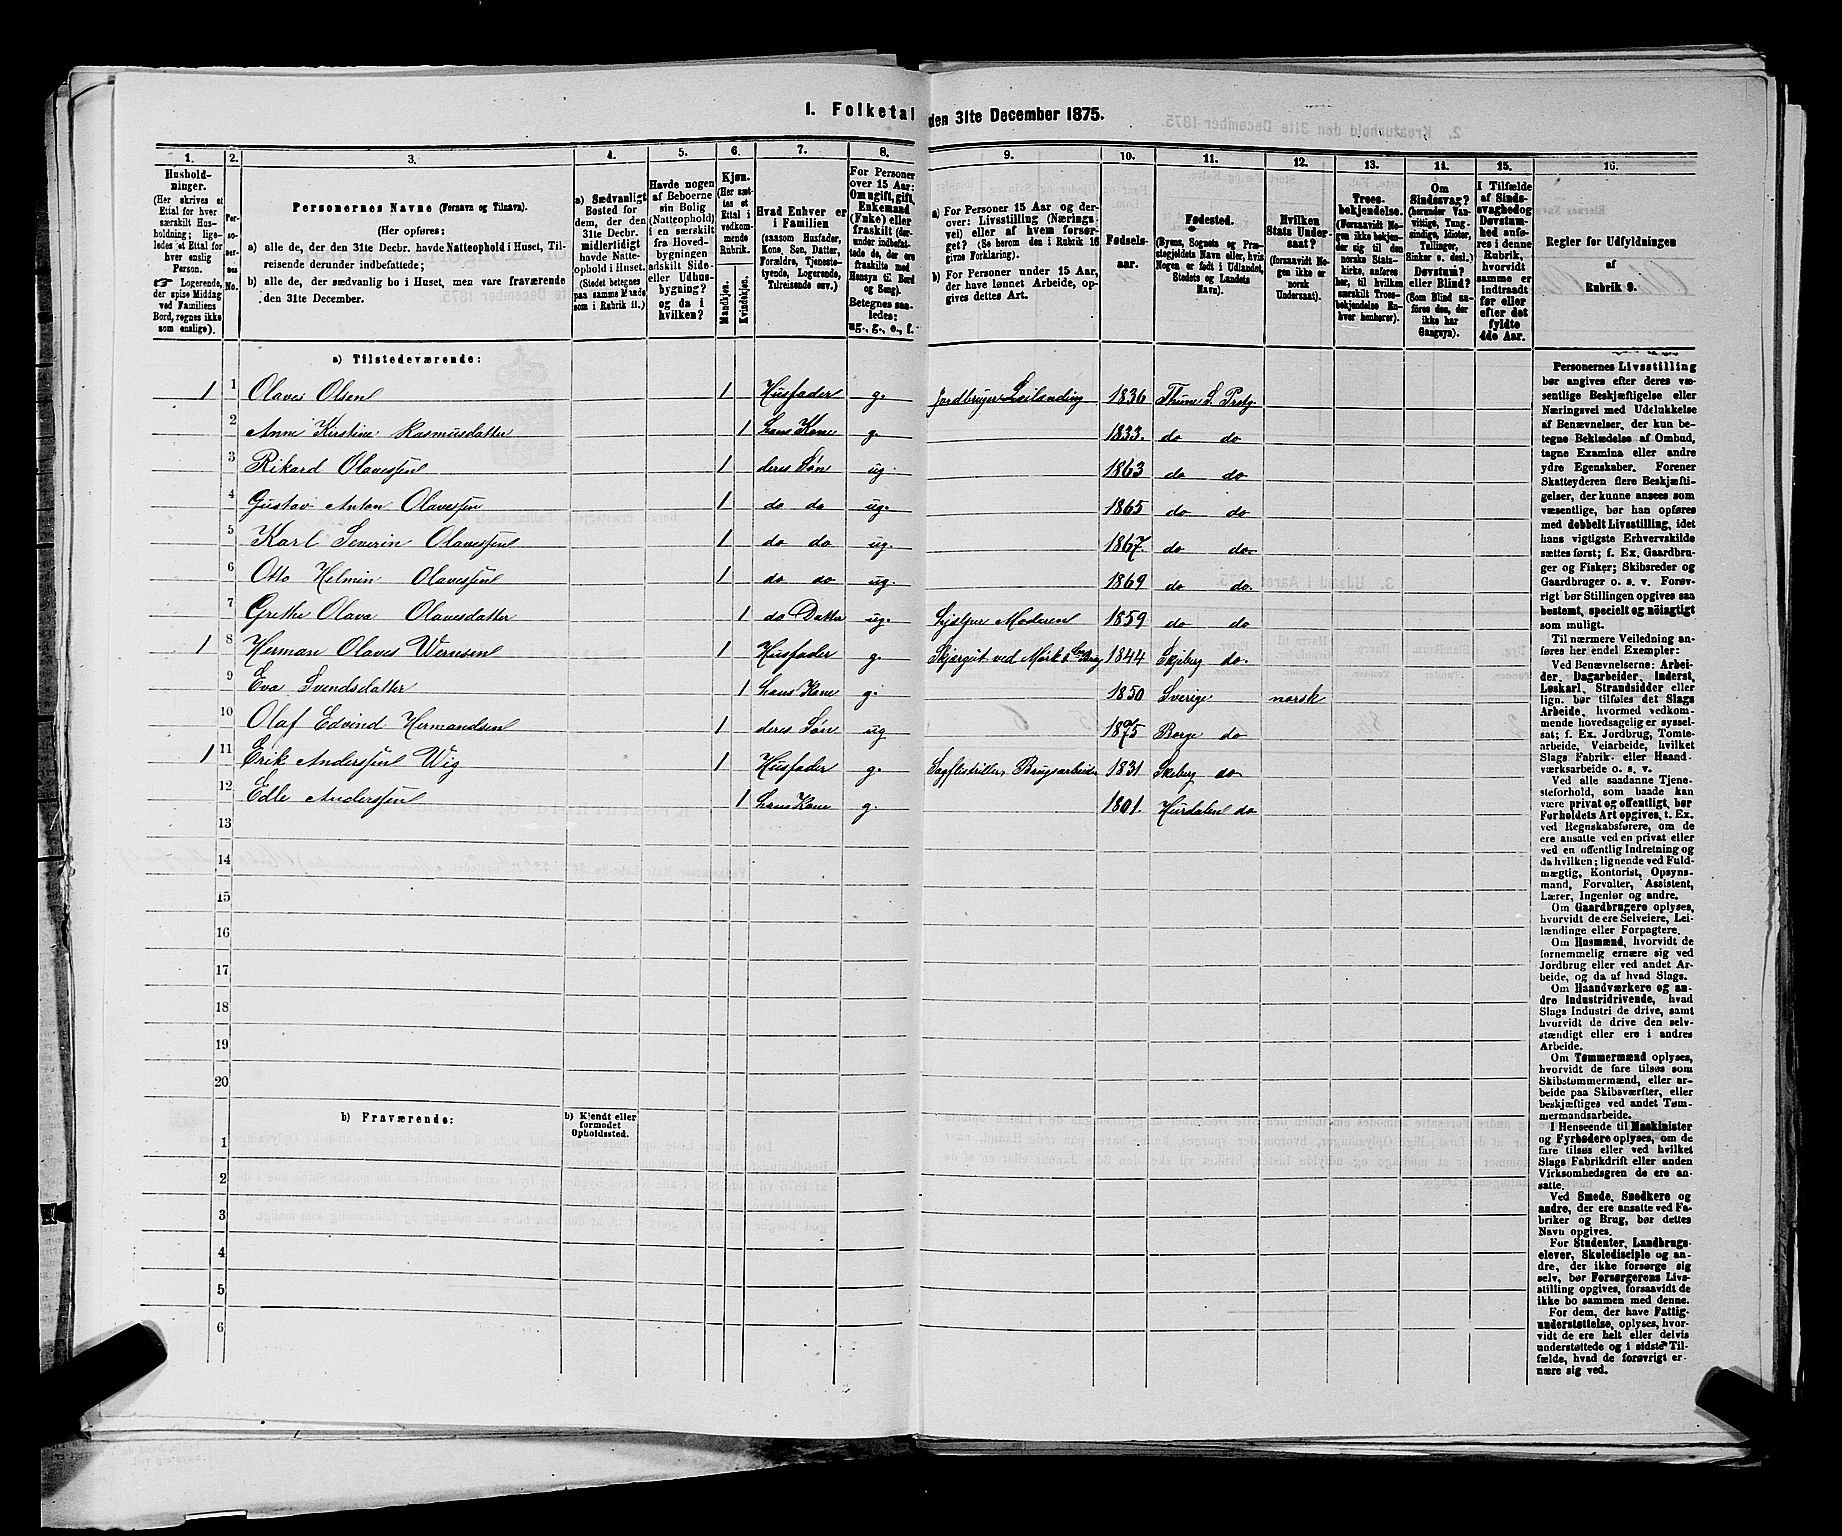 I. Folketal den 31te December 1875.
1. 2. 3. 4. 5. 6. 7. 8. 9. 10. 11. 12. 13. 14. 15. 16.
Husholdninger.
(Her skrives et
Ettal for hver
særskilt Husholdning;
ligeledes et Ettal for
hver enslig
Person.
Logerende,
der spise Middag
ved Familiens
Bord, regnes ikke
som enslige).
Personernes No.
Personernes Navne (Fornavn og Tilnavn).
(Her opføres:
a) alle de, der den 31te Decbr. havde Natteophold i Huset, Tilreisende derunder indbefattede;
b) alle de, der sædvanlig bo i Huset, men vare fraværende
den 31te December.
a) Sædvanligt
Bosted for
dem, der den
31te Decbr.
midlertidigt
havde Natteophold i Huset.
(Stedet betegnes
paa samme Maade
som i Rubrik 11.)
Havde nogen
af Beboerne
sin Bolig
(Natteophold)
i en særskilt
fra Hovedbygningen
adskilt Side- eller Udhusbygning?
og da i
hvilken?
Kjøn.
(Her sættes et
Ettal i
vedkommende
Rubrik.
Mandkjøn.
Kvindekjøn.
Hvad Enhver er
i Familien
(saasom Husfader,
Kone, Søn, Datter,
Forældre, Tjenestetyende, Logerende,
Tilreisende osv.)
For Personer
over 15 Aar:
Om ugift, gift,
Enkemand
(Enke) eller
fraskilt (derunder indbefattede de, der ere
fraskilte med
Hensyn til Bord
og Seng).
Betegnes saaledes:
ug., g., e., f.
a) For Personer 15 Aar og derover: Livsstilling (Næringsvei) eller af hvem forsørget? (Se herom den i Rubrik 16
givne Forklaring).
b) For Personer under 15 Aar,
der have lønnet Arbeide, opgives dettes Art.
Fødsels-
aar.
Fødested.
(Byens, Sognets og Præstegjeldets Navn eller, hvis
Nogen er født i Udlandet,
Stedets og Landets
Navn).
Hvilken
Stats Undersaat?
(forsaavidt Nogen ikke er
norsk
Undersaat).
Troesbekjendelse.
(Forsaavidt Nogen ikke bekjender sig til den
norske Statskirke, anføres
her, til hvilken
særskilt Troesbekjendelse Enhver henhører).
Om
Sindssvag?
(herunder Vanvittige, Tungsindige, Idioter,
Tullinger,
Sinker o. desl.)
Døvstum?
eller Blind?
(Som Blind anføres den, der
ikke har
Gangsyn).
I Tilfælde
af Sindssvaghed og
Døvstumhed anføres i denne
Rubrik,
hvorvidt
samme er
indtraadt
før eller
efter det
fyldte
4de Aar.
Regler for Udfyldningen
af
Rubrik 9.
a) Tilstedeværende:
1 1 Olaves Olsen 1 Husfader g. Jordbruger Leilænding 1836 Thune S. Prstg
2 Anne Kirstine Rasmusdatter 1 hans Kone g. 1833. do do
3 Rikard Olavessen 1 deres Søn ug. 1863 do do
4 Gustav Anton Olavessen 1 do do ug. 1865 do do
5 Karl Severin Olavessen 1 do do ug. 1867. do do
6 Otto Helmin Olavessen 1 do do ug. 1869 do do.
7 Grethe Olava Olavesdatter 1 do Datter ug. hjælper Moderen 1859 do do
1 8 Herman Olaves Wernesen 1 Husfader g. ved 1844 Skjeberg do.
9 Eva Svendsdatter 1 hans Kone g. 1850 Sverige norsk
10 Olaf Edvind Hermandsen 1 deres Søn ug 1875 Borge do
1 11 Erik Anderssen Wig 1 Husfader g. Brugsarbeider 1831 Skeberg do
12 Edle Anderssen 1 hans Kone g. 1801. Hurdalen do
13
14
15
16
17
18
19
20
b) Fraværende:
b) Kjendt eller
formodet
Opholdssted.
1
2
3
4
5
6
Personernes Livsstilling
bør angives efter deres væsentlige Beskjæftigelse eller
Næringsvei med Udelukkelse
af Benævnelser, der kun betegne Beklædelse af Ombud,
tagne Examina eller andre
ydre Egenskaber. Forener
Skatteyderen flere Beskjæftigelser, der kunne ansees som
væsentlige, bør han opføres
med dobbelt Livsstilling, idet
hans vigtigste Erhvervskilde
sættes først; f. Ex. Gaardbruger og Fisker; Skibsreder og
Gaardbruger o. s. v. Forøvrigt bør Stillingen opgives saa
bestemt, specielt og nøiagtigt
som muligt.
Til nærmere Veiledning anføres her endel Exempler:
Ved Benævnelserne: Arbeider, Dagarbeider, Inderst,
Løskarl, Strandsidder eller
lign. bør tilføies det Slags
Arbeide, hvormed vedkommende hovedsagelig er sysselsat; f. Ex. Jordbrug, Tomtearbeide, Veiarbeide, hvilket
Slags Fabrik- eller Haandværksarbeide o. s. v.
Ved alle saadanne Tjenesteforhold, som baade kan
være privat og offentligt, bør
Forholdets Art opgives, t. Ex.
ved Regnskabsførere, om de
ere ansatte ved en privat eller
ved en offentlig Indretning og
da hvilken; lignende ved Fuldmægtig, Kontorist, Opsynsmand, Forvalter, Assistent,
Lærer, Ingeniør og andre.
Om Gaardbrugere oplyses,
hvorvidt de ere Selveiere, Leilændinge eller Forpagtere.
Om Husmænd, hvorvidt de
fornemmelig ernære sig ved
Jordbrug eller ved andet Arbeide, og da af hvad Slags.
Om Haandværkere og andre Industridrivende, hvad
Slags Industri de drive, samt
hvorvidt de drive den selvstændigt eller ere i andres
Arbeide.
Om Tømmermænd oplyses,
hvorvidt de fare tilsøs som
Skibstømmermænd, eller arbeide paa Skibsværfter, eller
beskjæftiges ved andet Tømmermandsarbeide.
I Henseende til Maskinister
og Fyrbødere oplyses, om de
fare tilsøs eller ved hvilket
Slags Fabrikdrift eller anden
Virksomhedsgren de ere ansatte.
Ved Smede, Snedkere og
andre, der ere ansatte ved Fabriker og Brug, bør dettes
Navn opgives.
For Studenter, Landbrugselever, Skoledisciple og andre, der ikke forsørge sig
selv, bør Forsørgerens Livsstilling opgives, forsaavidt de
ikke bo sammen med denne.
For dem, der have Fattigunderstøttelse, oplyses, hvorvidt de ere helt eller delvis
understøttede og i sidste Tilfælde, hvad de forøvrigt ernære sig ved.